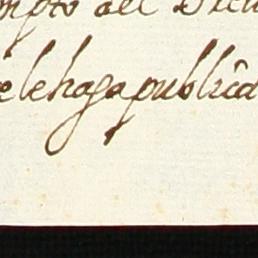 mpto del
e le haga public